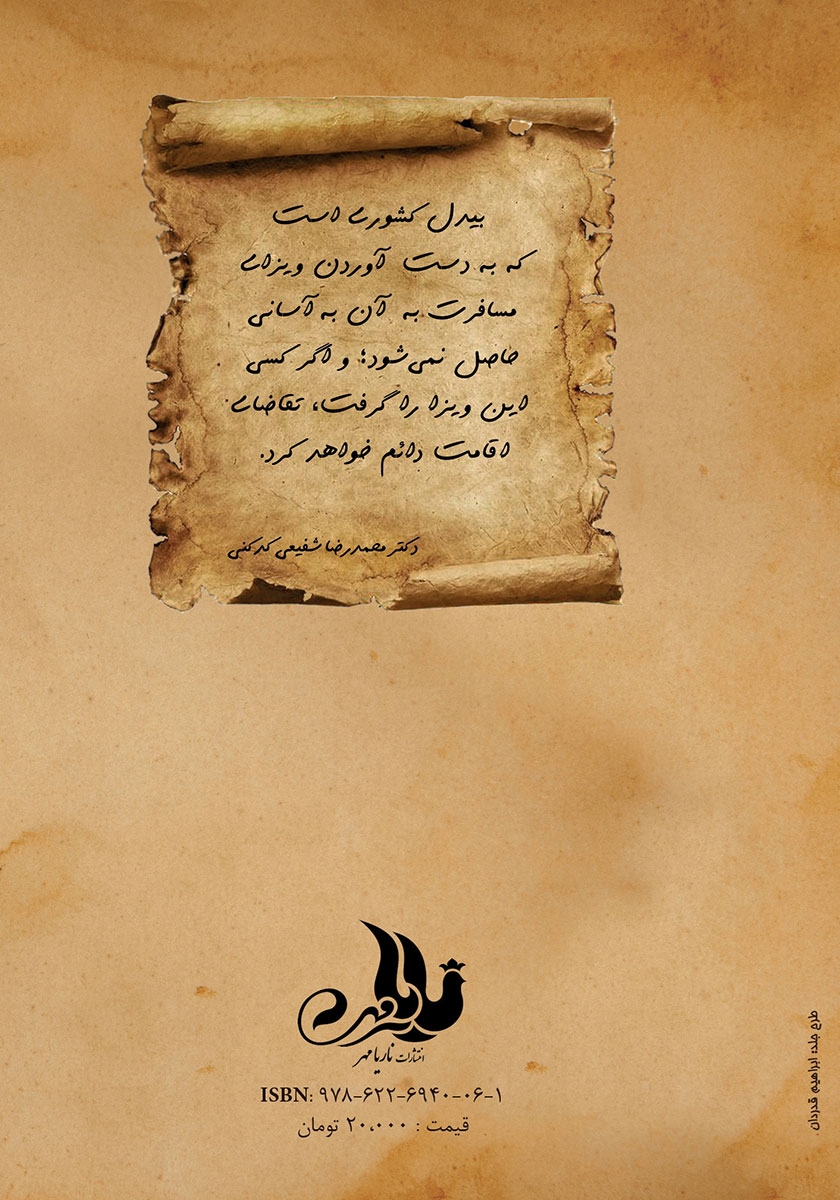 بیدل کشوری است
که به دست آوردن ویزای
مسافرت به آن به آسانی
حاصل نمی‌شود؛ و اگر کسی
این ویزا را گرفت، تقاضای
اقامت دائم خواهد کرد.
دکتر محمدرضا شفیعی کدکنی
انتشارات ناریا مهر
ISBN: ۹۷۸-۶۲۲-۶۹۴۰-۰۶-۱
قیمت : ۲۰،۰۰۰ تومان
طرح جلد: ابراهیم قدردان